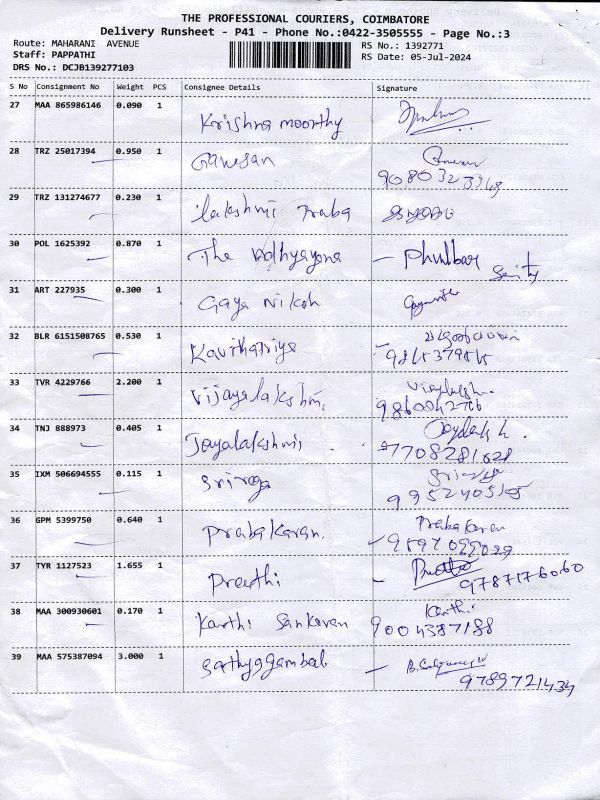 THE PROFESSIONAL COURIERS, COIMBATORE
Delivery Runsheet - P41 - Phone No.:0422-3505555 - Page No.:3
Route: MAHARANI AVENUE
RS No.: 1392771
Staff: PAPPATHI
RS Date: 05-Jul-2024
DRS No.: DCJB139277103
S No Consignment No Weight PCS Consignee Details Signature
27 MAA 865986146 0.090 1
Krishna moorthy
28 TRZ 25017394 0.950 1
Ganesan
9080323369
29 TRZ 131274677 0.230 1
lakshmi Praba
30 POL 1625392 0.870 1
The Adhyayana - Phulbar
31 ART 227935 0.300 1
Gaya Nikoh
32 BLR 6151508765 0.530 1
Kavithapriya
33 TVR 4229766 2.200 1
Vijayalakshmi.
34 TNJ 888973 0.405 1
Jayalakshmi
7708281628
35 IXM 506694555 0.115 1
Sriroga
36 GPM 5399750 0.640 1
Praba Karan
Praba Karan.
37 TYR 1127523 1.655 1
Preethi
9787176060
38 MAA 300930601 0.170 1
Karthi
Karthi Sankaran 9004387188
39 MAA 575387094 3.000 1
Sathyagambal
9789721434